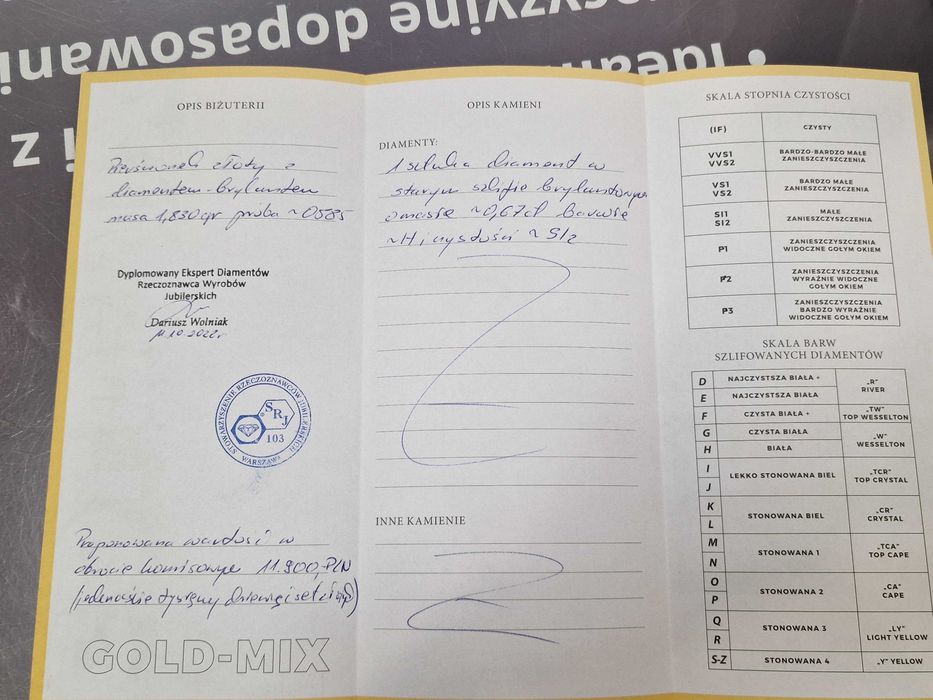 ecyzyjne dopasowani
• Idea
i z
OPIS BIŻUTERII
Pierścionek złoty z
diamentem-brylantem
masa 1,830gr próba ~0585
Dyplomowany Ekspert Diamentów
Rzeczoznawca Wyrobów
Jubilerskich
Dariusz Wolniak
11.10.2022r
STOWARZYSZENIE RZECZOZNAWCÓW JUBILERSKICH
WARSZAWA
SRJ
103
Proponowana wartość w
obrocie komisowym 11.900,-PLN
(jedenaście tysięcy dziewięćset złotych)
GOLD-MIX
OPIS KAMIENI
DIAMENTY:
1 sztuka diament w
starym szlifie brylantowym
o masie ~0,67ct barwie
~H i czystości ~SI2
INNE KAMIENIE
SKALA STOPNIA CZYSTOŚCI
(IF) CZYSTY
VVS1 BARDZO-BARDZO MAŁE
VVS2 ZANIESZCZYSZCZENIA
VS1 BARDZO MAŁE
VS2 ZANIESZCZYSZCZENIA
SI1 MAŁE
SI2 ZANIESZCZYSZCZENIA
P1 ZANIESZCZYSZCZENIA
WIDOCZNE GOŁYM OKIEM
P2 ZANIESZCZYSZCZENIA
WYRAŹNIE WIDOCZNE
GOŁYM OKIEM
P3 ZANIESZCZYSZCZENIA
BARDZO WYRAŹNIE
WIDOCZNE GOŁYM OKIEM
SKALA BARW
SZLIFOWANYCH DIAMENTÓW
D NAJCZYSTSZA BIAŁA + „R"
E NAJCZYSTSZA BIAŁA RIVER
F CZYSTA BIAŁA + „TW" TOP WESSELTON
G CZYSTA BIAŁA „W"
H BIAŁA WESSELTON
I LEKKO STONOWANA BIEL „TCR"
J TOP CRYSTAL
K STONOWANA BIEL „CR"
L CRYSTAL
M STONOWANA 1 „TCA"
N TOP CAPE
O STONOWANA 2 „CA"
P CAPE
Q STONOWANA 3 „LY"
R LIGHT YELLOW
S-Z STONOWANA 4 „Y" YELLOW